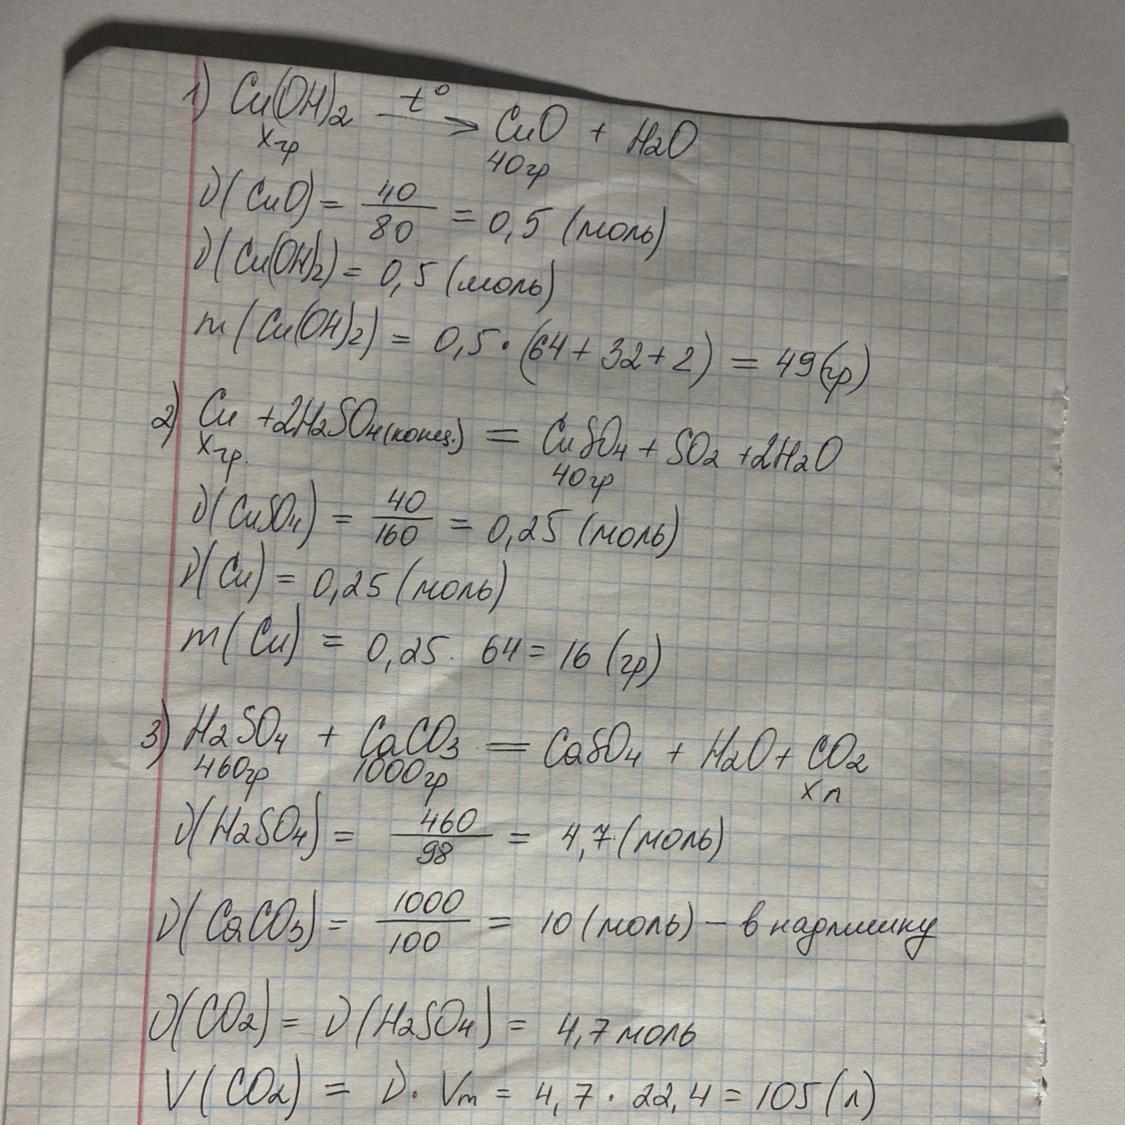 1) Cu(OH)2 t° → CuO + H2O
х гр 40 гр
ν(CuO) = 40/80 = 0,5 (моль)
ν(Cu(OH)2) = 0,5 (моль)
m(Cu(OH)2) = 0,5 · (64 + 32 + 2) = 49 (гр)
2) Cu + 2H2SO4 (конц.) = CuSO4 + SO2 + 2H2O
х гр. 40 гр
ν(CuSO4) = 40/160 = 0,25 (моль)
ν(Cu) = 0,25 (моль)
m(Cu) = 0,25 · 64 = 16 (гр)
3) H2SO4 + CaCO3 = CaSO4 + H2O + CO2
460 гр 1000 гр х л
ν(H2SO4) = 460/98 = 4,7 (моль)
ν(CaCO3) = 1000/100 = 10 (моль) – в надлишку
ν(CO2) = ν(H2SO4) = 4,7 моль
V(CO2) = ν · Vm = 4,7 · 22,4 = 105 (л)